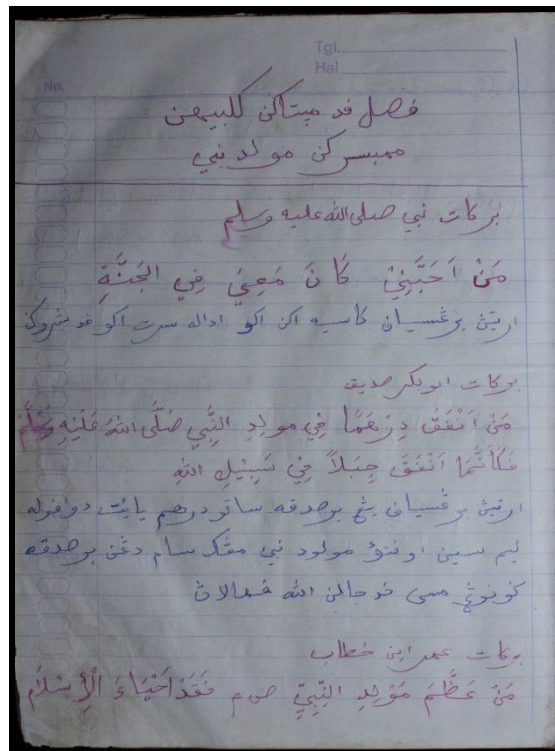 Tgl.
Hal
No.
فصل فد مپتاكن كلبيهن
ممبسركن مولد نبي
بركات نبي صلى الله عليه وسلم
مَنْ اَحَبَّنِيْ كَانَ مَعِيَ فِي الْجَنَّةِ
ارتيڽ برڠسياف كاسيه اكن اكو اداله سرت اكو فد
بركات ابوبكر صديق
مَنْ اَنْفَقَ دِرْهَمًا فِي مولِدِ النَّبِي صَلَّى اللهُ عَلَيْهِ وَسَلَّم
فَكَأَنَّمَا اَنْفَقَ جَبَلاً فِي سَبِيْلِ اللهِ
ارتيڽ برڠسياف يڠ برصدقه ساتو درهم يايت دوافوله
ليم سين اونتوق مولود نبي مڬ سام دڠن برصدقه
ڬونوڠ مس فد جالن الله تعالى
بركات عمر ابن خطاب
مَنْ عَظَّمَ مَوْلِدِ النَّبِيِّ ص م فَقَدْ اَحْيَاءَ الْاِسْلَام